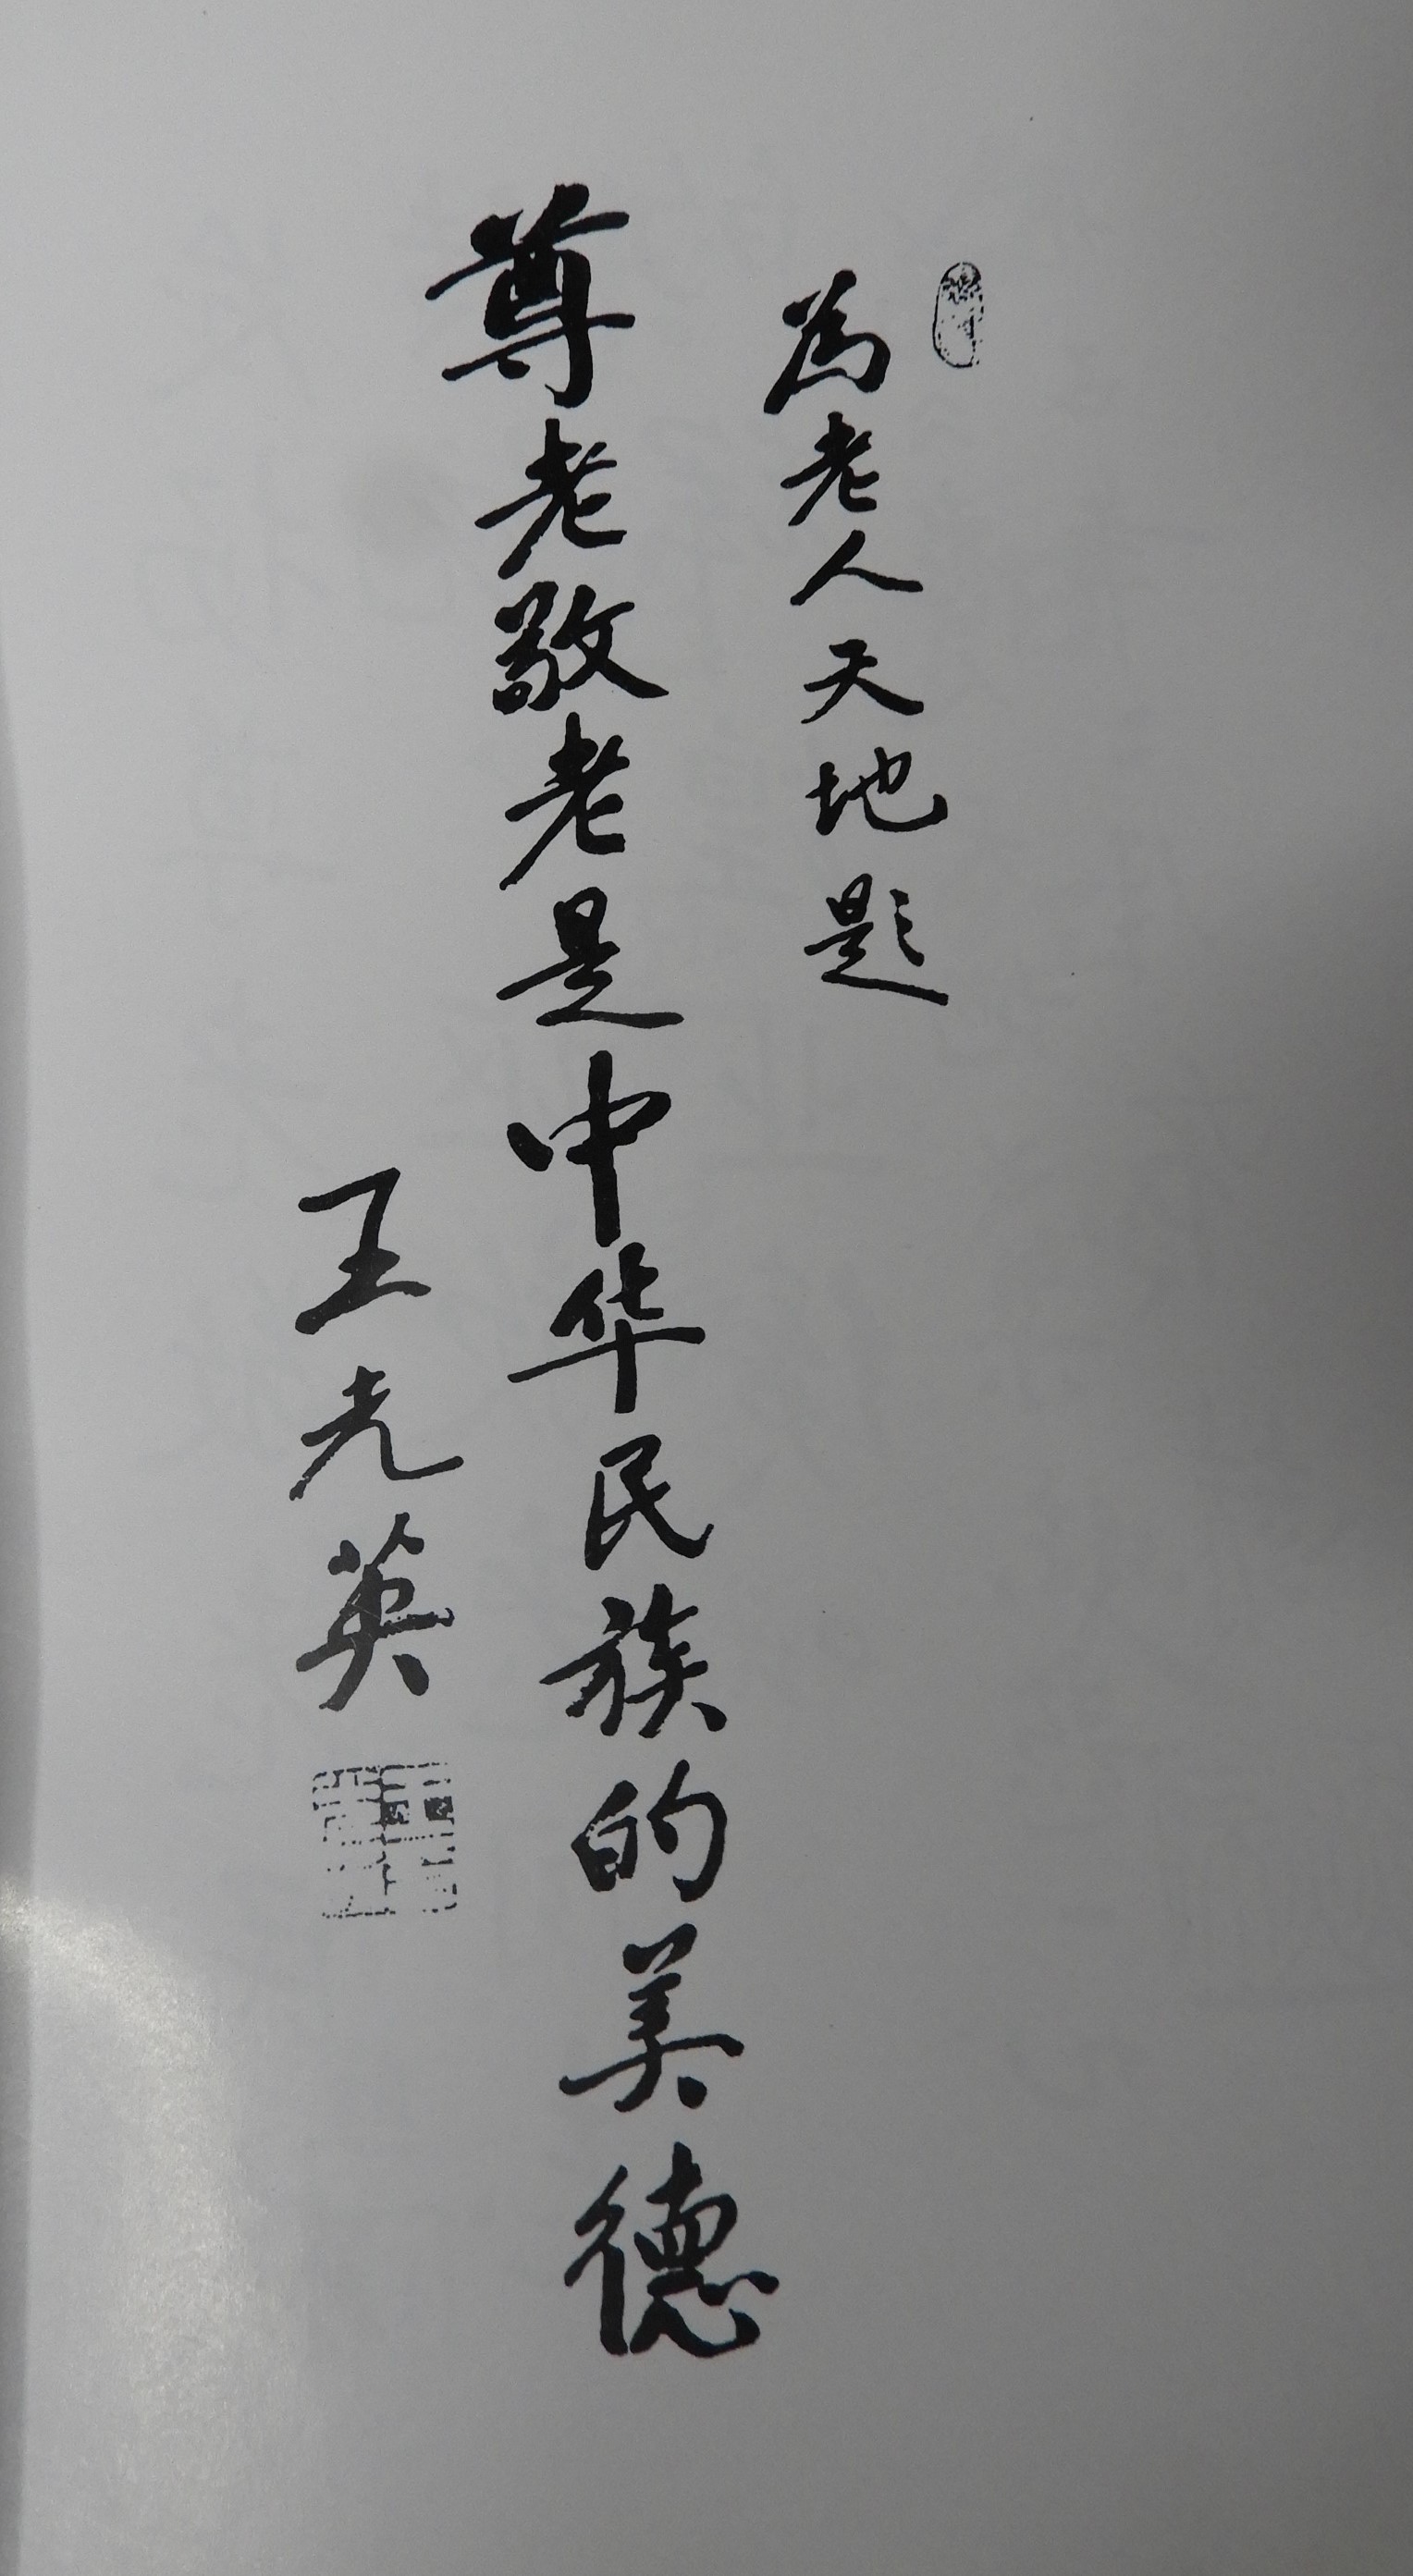 為老人天地题
尊老敬老是中华民族的美德
王光英